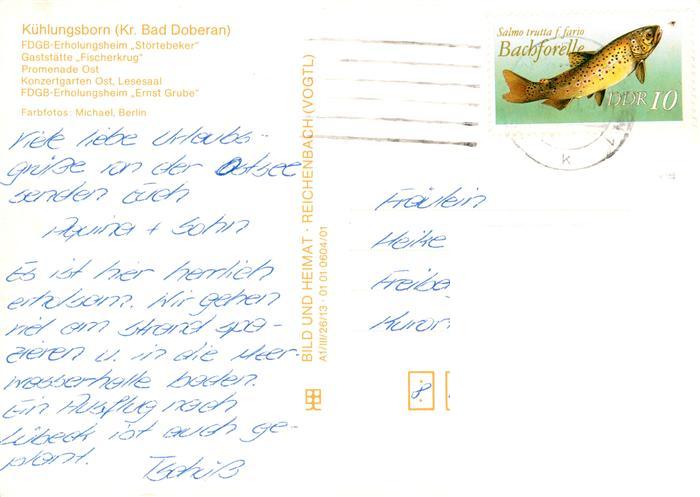 Kühlungsborn (Kr. Bad Doberan)
FDGB-Erholungsheim „Störtebeker"
Gaststätte „Fischerkrug"
Promenade Ost
Konzertgarten Ost, Lesesaal
FDGB-Erholungsheim „Ernst Grube"
Farbfotos: Michael, Berlin
Viele liebe Urlaubs-
grüße von der Ostsee
senden Euch
+ Sohn
Es ist hier herrlich
erholsam. Wir gehen
viel am Strand spa-
zieren u. in die Meer-
wasserhalle baden.
Ein Ausflug nach
Lübeck ist auch ge-
plant.
Tschüß
BILD UND HEIMAT · REICHENBACH (VOGTL)
A1/III/26/13 · 01 01 0604/01
Salmo trutta f. fario
Bachforelle
DDR 10
K
Fräulein
Heike
Freibe
Kuror
8